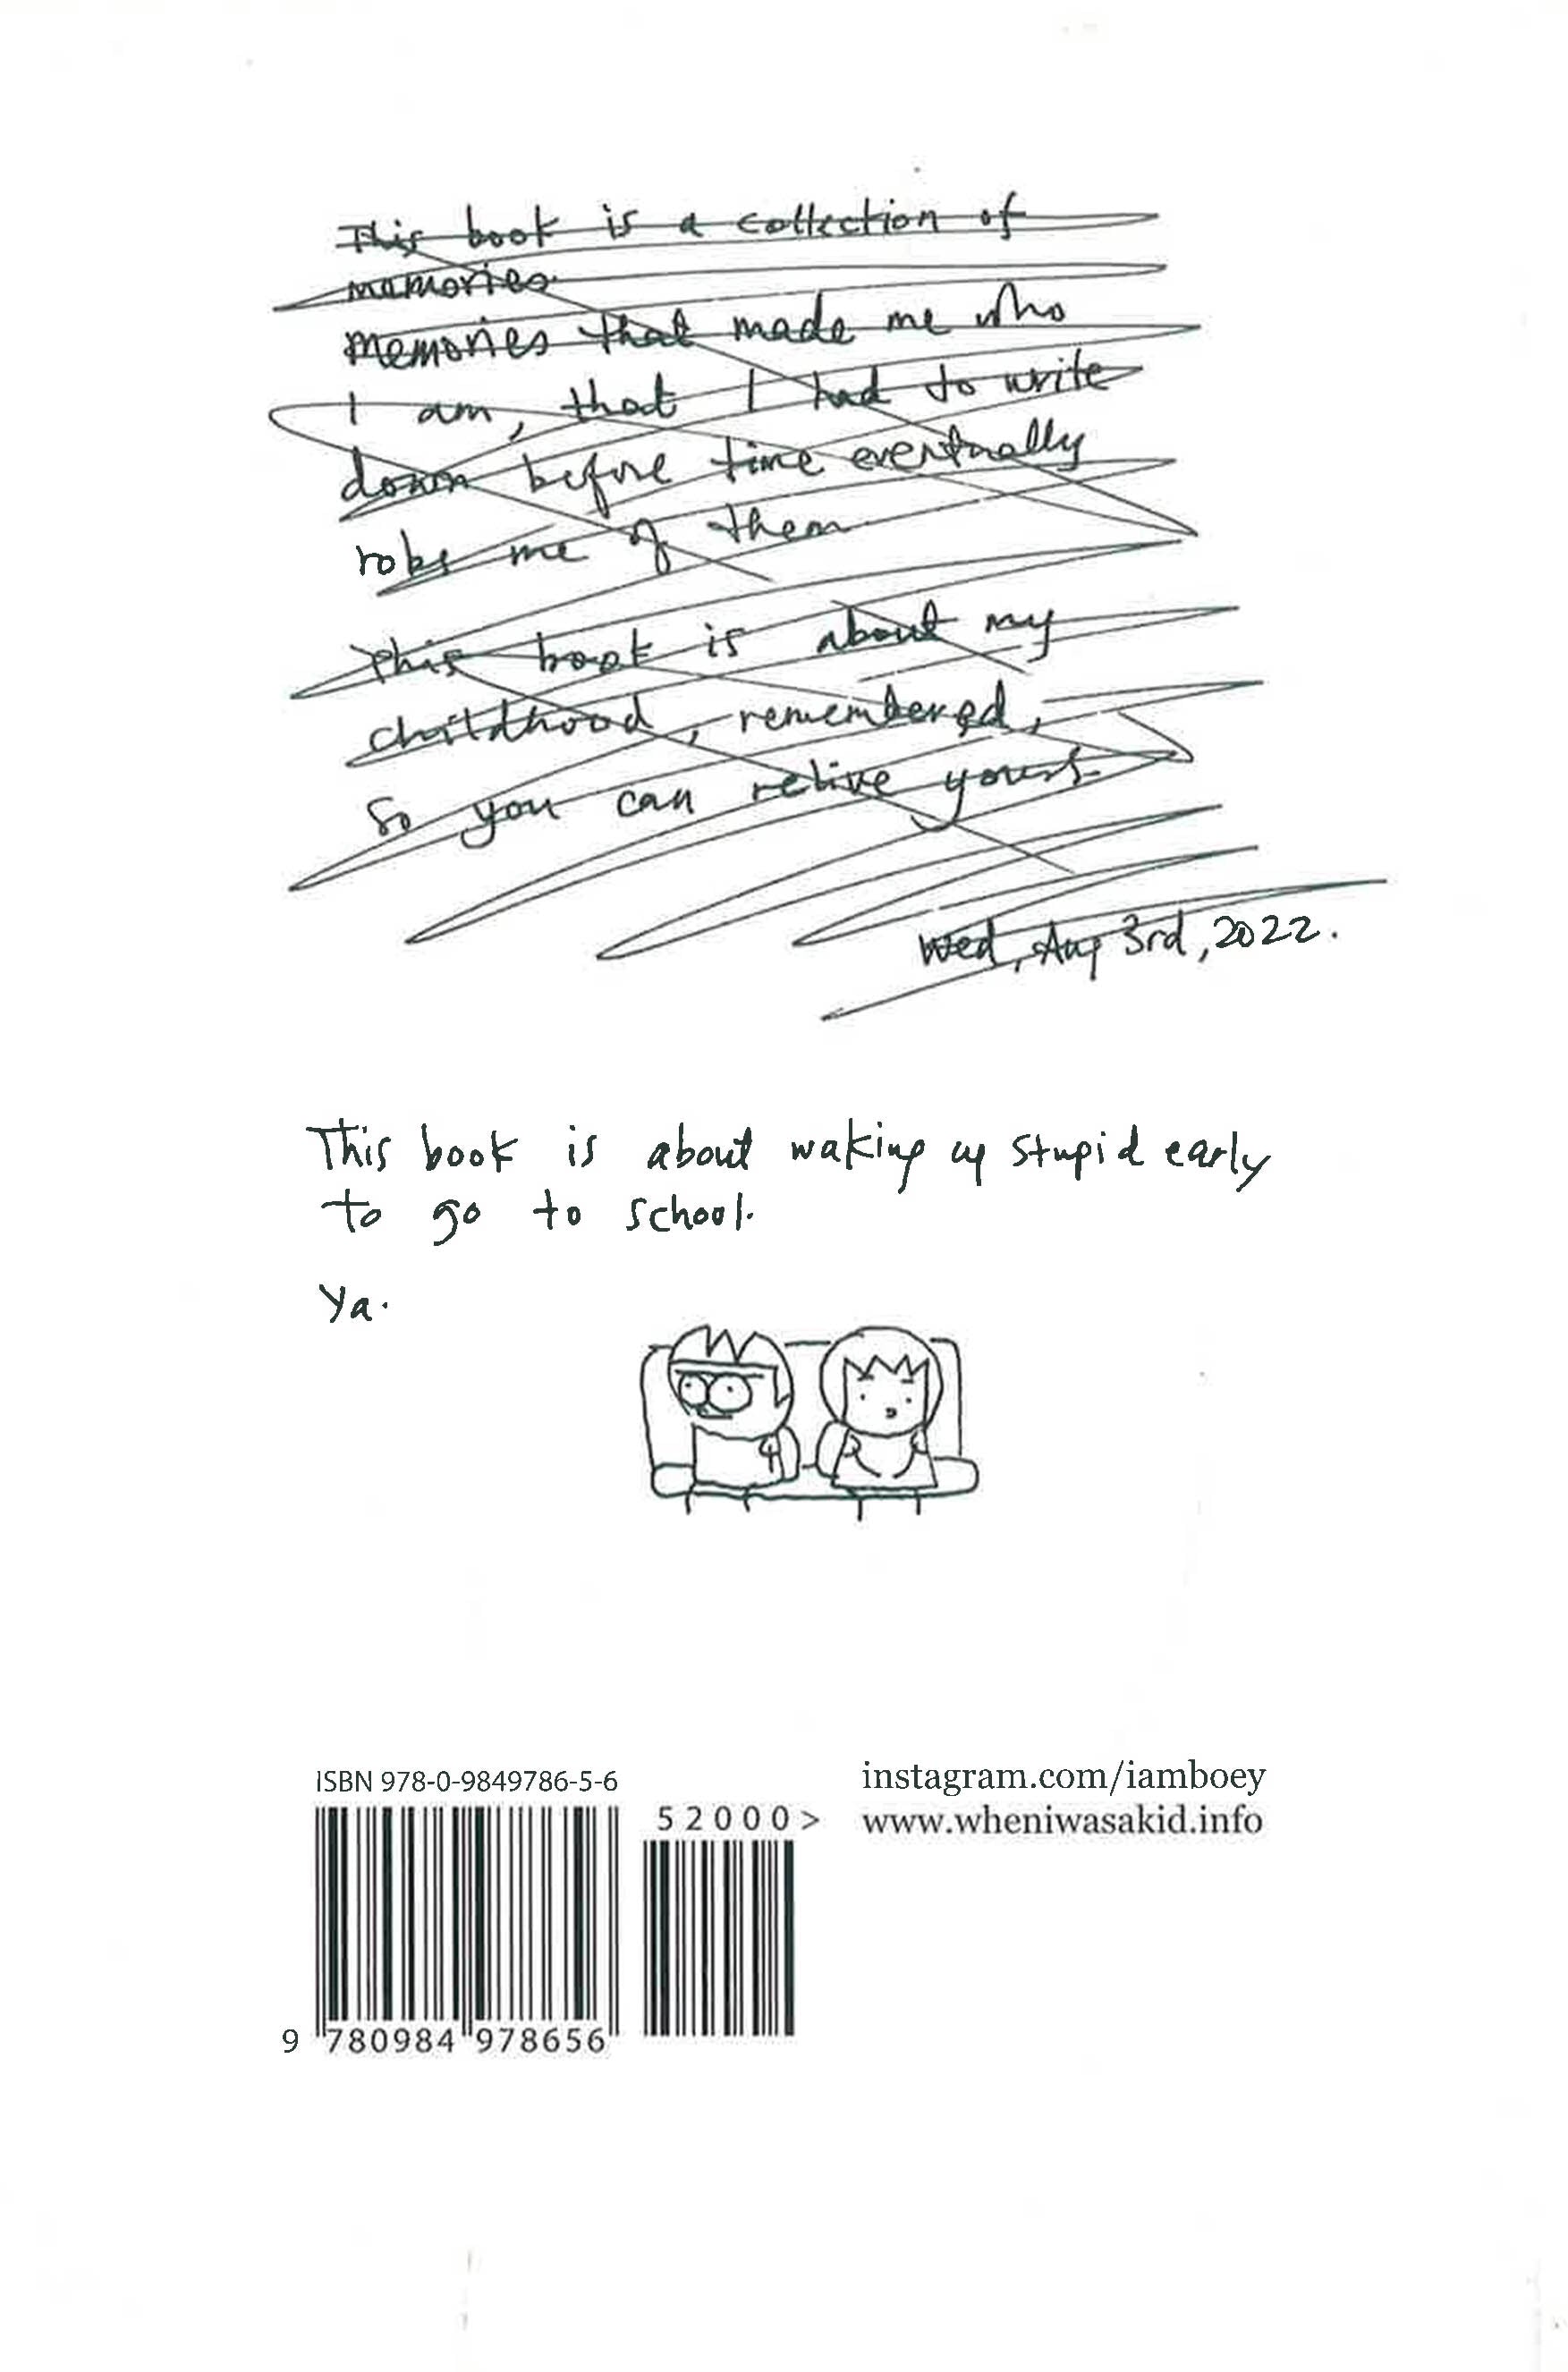 This book is a collection of
memories.
memories that made me who
I am, that I had to write
down before time eventually
robs me of them
This book is about my
childhood, remembered,
so you can relive yours.
Wed, Aug 3rd, 2022.
This book is about waking up stupid early
to go to school.
Ya.
ISBN 978-0-9849786-5-6
52000>
9 780984 978656
instagram.com/iamboey
www.wheniwasakid.info